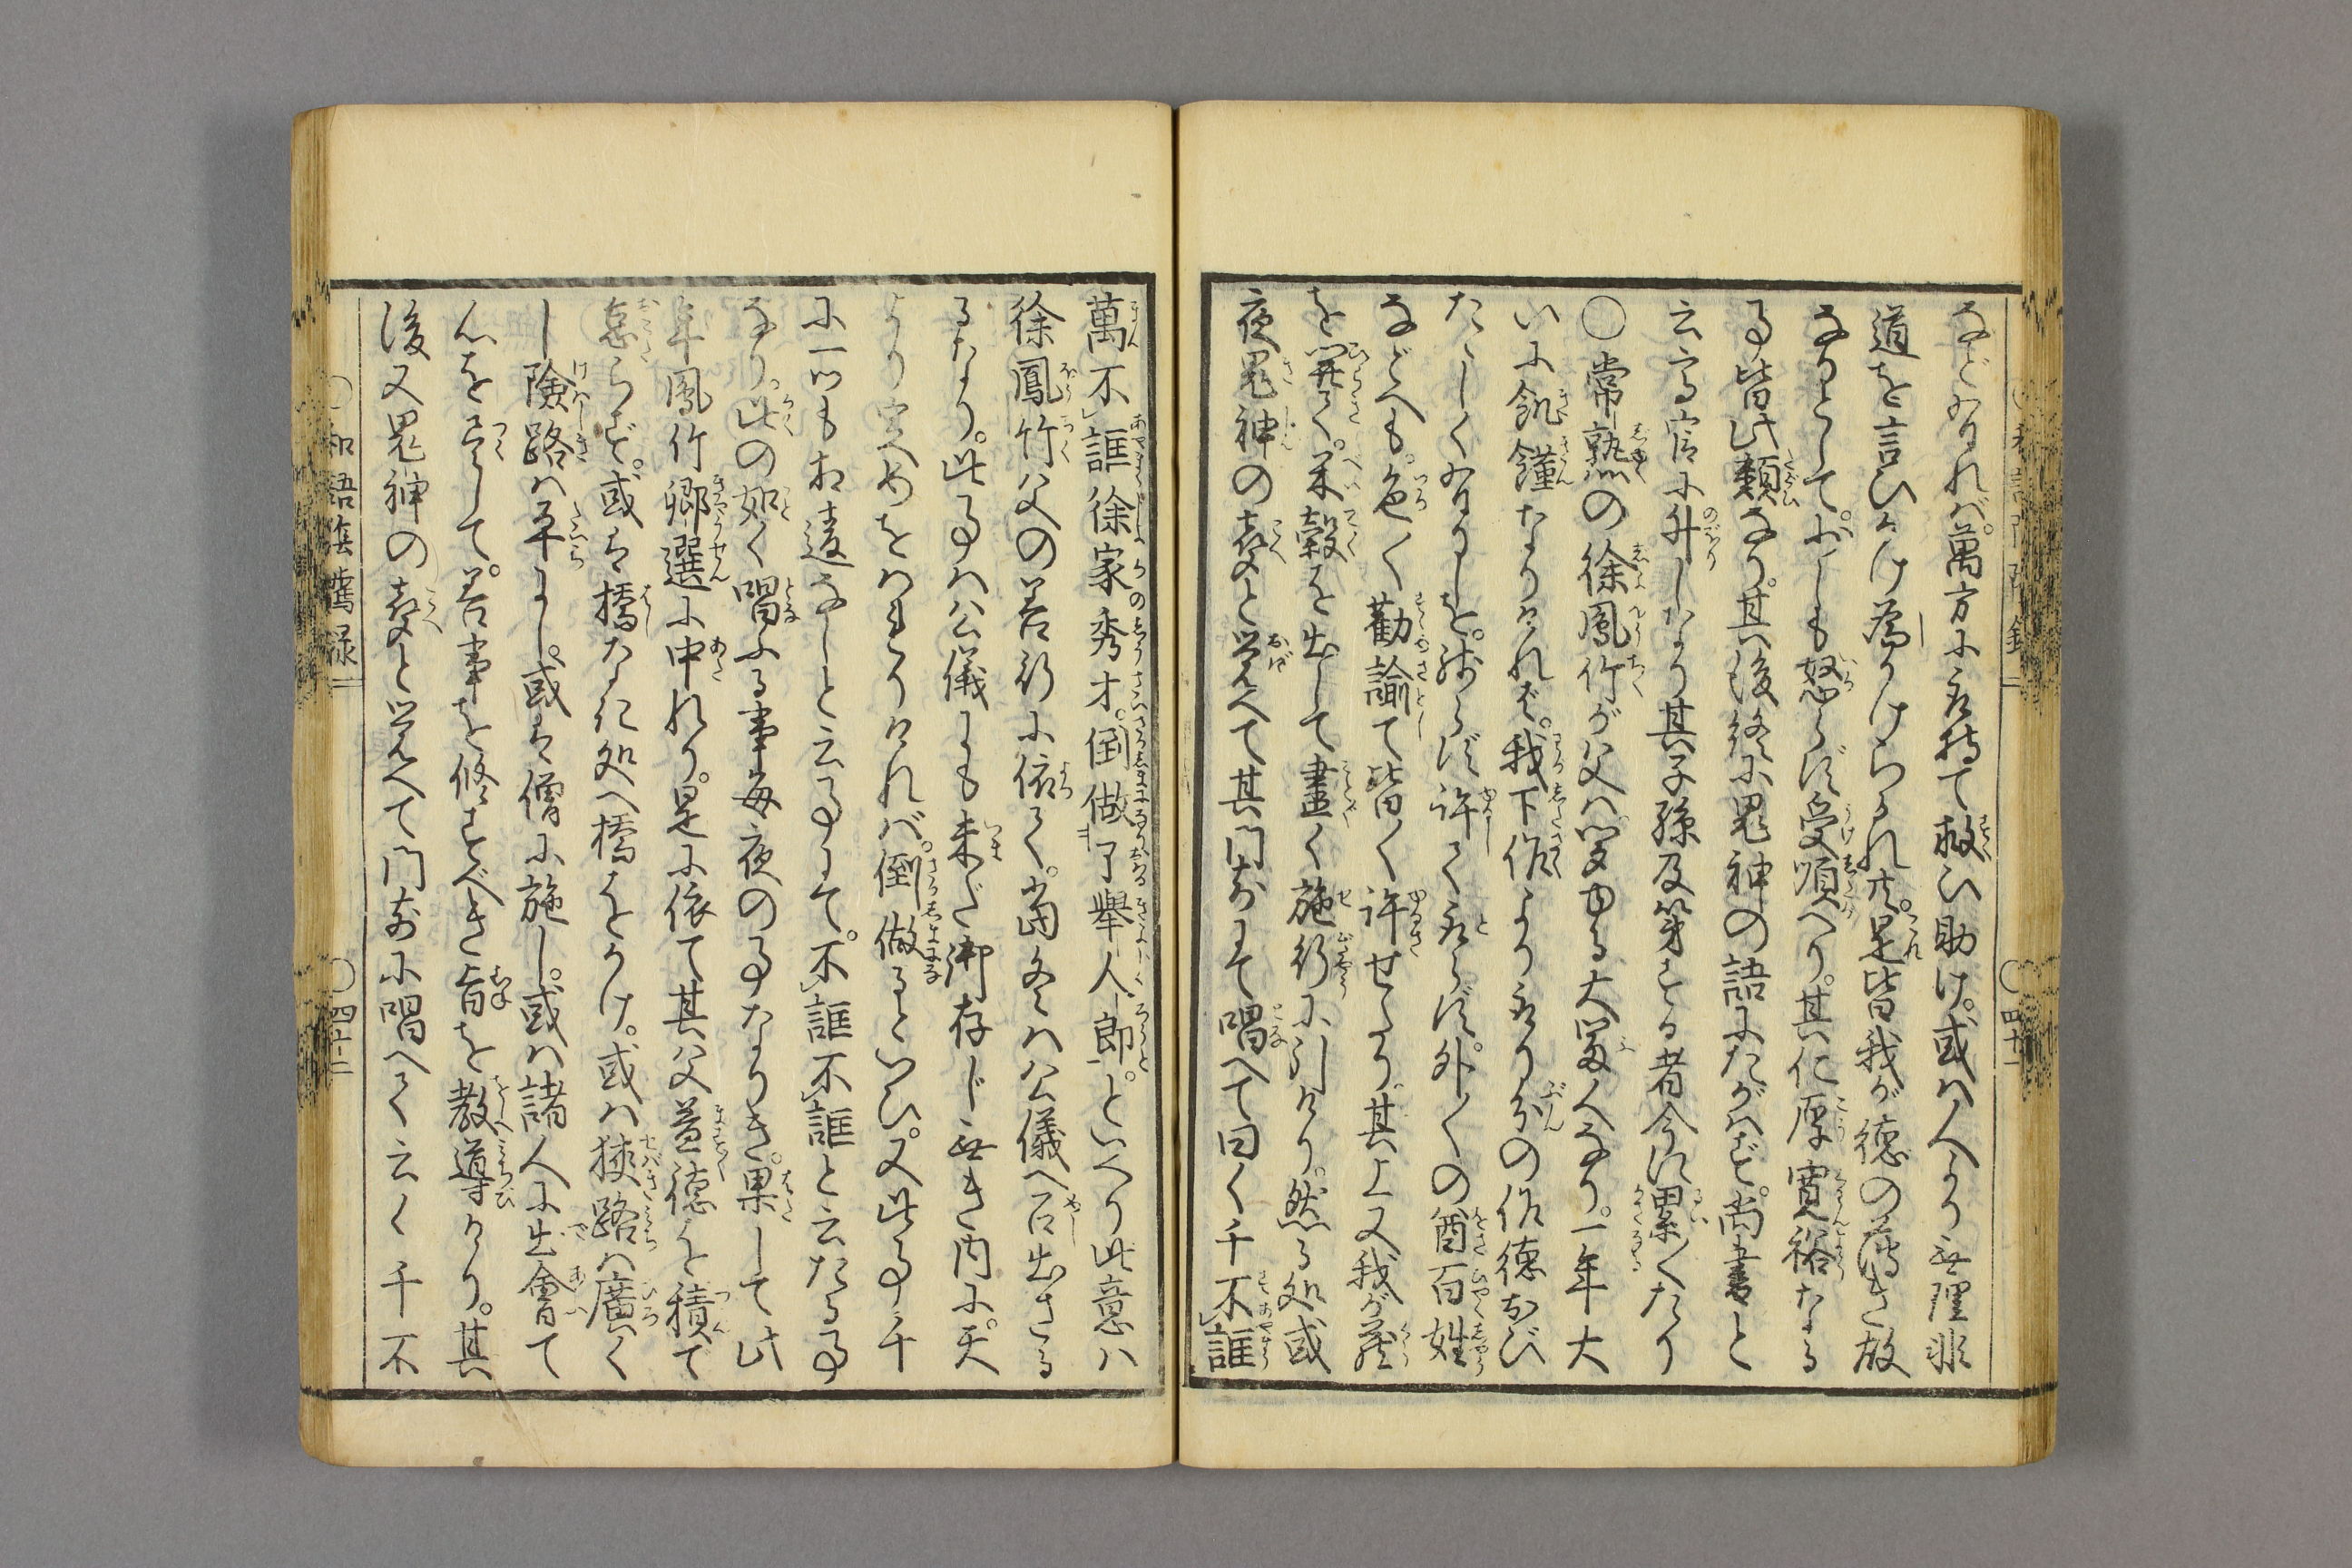 などゝれバ。萬方に取持て救ひ助け。或ハ人より無理非
道を言ひかけ為かけらるれ共。是皆我が徳の薄き故
なりとして。少しも怒らず受順へり。其仁厚寛裕なる
事皆此類なり。其後終に鬼神の語にたがハず。尚書と
云高官に升しなり其子孫及第する者今に累〻たり
〇常熟の徐鳳竹が父ハ聞ゆる大冨人なり。一年大
いに飢饉なりけれど。我下作より取り分の作徳および
たゝしくありしを。残らず許して取らず。外〻の酋百姓
などへも。色〻勧諭て皆〻許せたり。其上又我が蔵
を開て。米穀を出して盡く施行に引けり。然る処或
夜鬼神の声と覚へて其門前にて唱へて曰く千不誰
萬不誰徐家秀才。倒做了舉人郎。といへり此意ハ
徐鳳竹父の善行に依て。當冬ハ公儀へ召出さる
るなり。此事ハ公儀にも未だ御存じ無き内に。天
より定めをハれりけれバ。倒做るといひ。又此事千
に一つも相違なしと云事にて。不誰不誰と云たる事
なり。此の如く唱ふる事毎夜の事なりき。果して此
年鳳竹郷選に中れり。是に依て其父益徳を積で
怠らず。或ハ橋なき処へ橋をかけ。或ハ狭路ハ廣く
し険路ハ平にし。或ハ僧に施し。或ハ諸人に出會て
心を尽して。善事を修すべき旨を教導けり。其
後又鬼神の声と覚へて門前に唱へて云く千不
〇和語陰隲録二
〇四十二